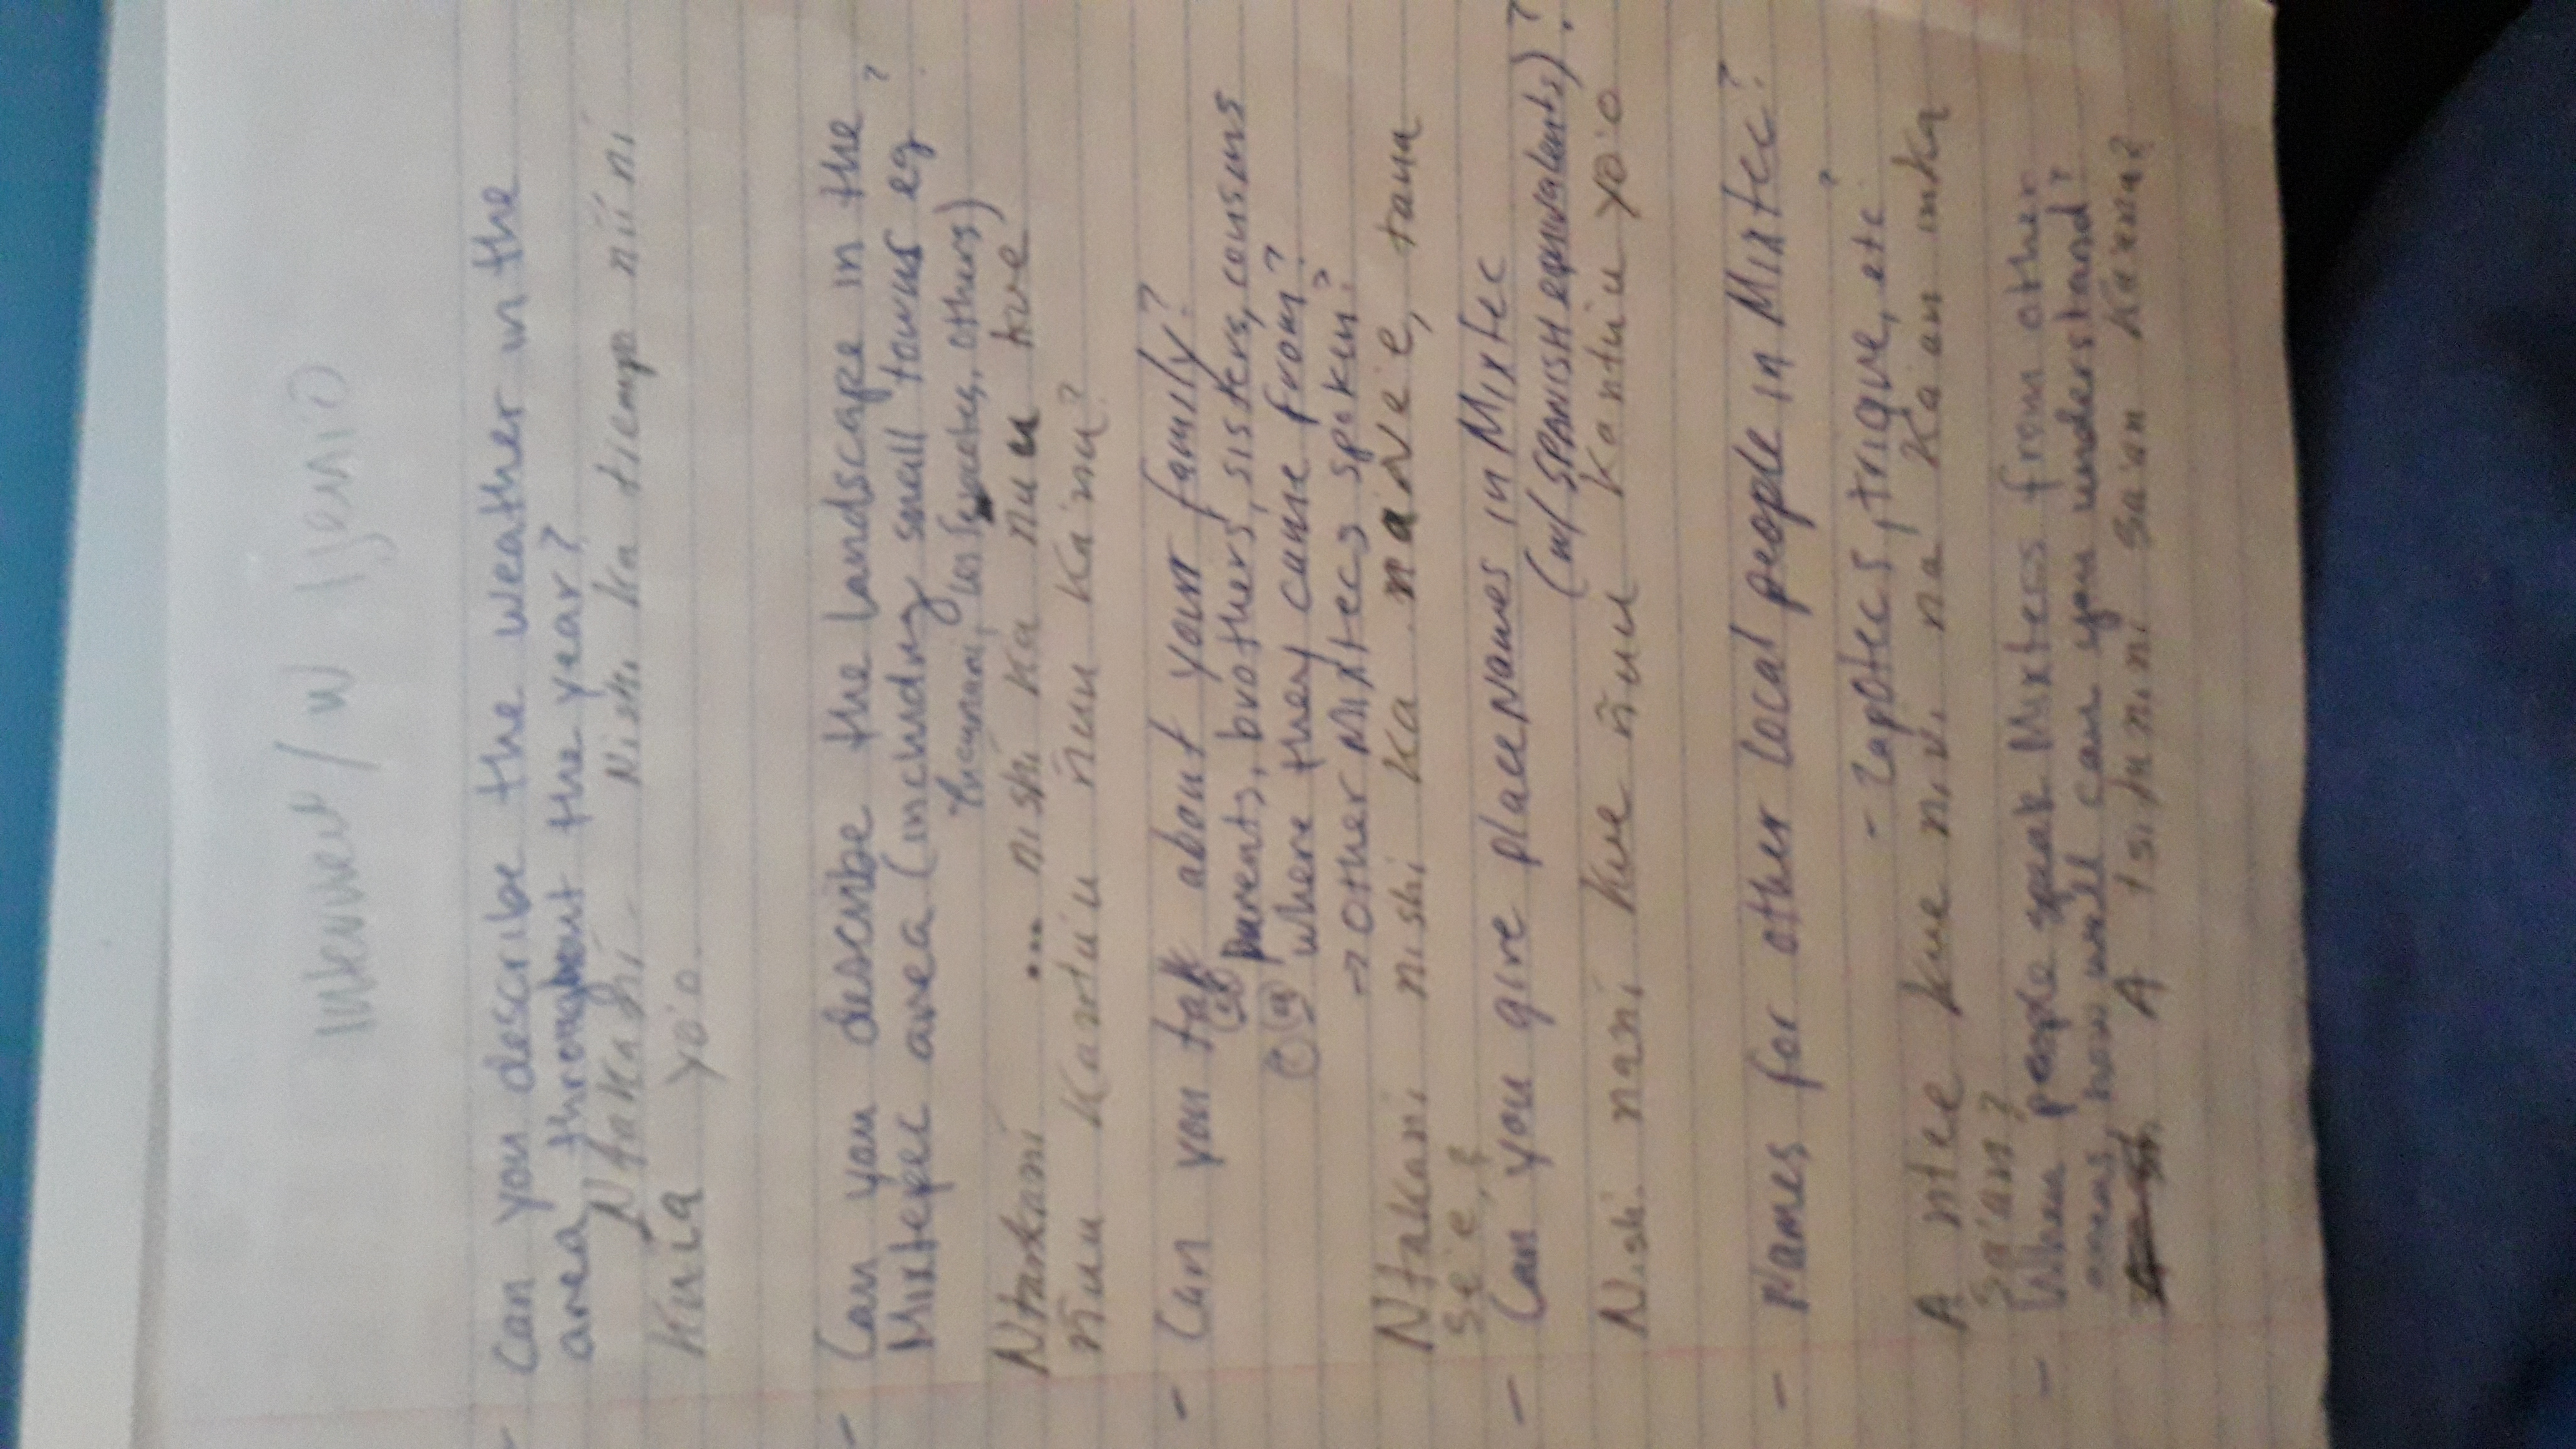 Interview / w Ijenio
- Can you describe the weather in the
area, throughout the year?
Ntakani - Nishi ka tiempo nií ni
Kuia yo'o.
- Can you describe the landscape in the
Mixtepec area (including small towns eg ?
Yucunani, los Tejocotes, others)
Ntakani ... nishi ka ñuu kue
ñuu Kantu'u ñuu Ka'nu?
- Can you talk about your family?
parents, brothers, sisters, cousins
where they came from?
→ other Mixtecs spoken?
Ntakani nishi ka na Ne'e, tana
se'e, ?
- Can you give place Names in Mixtec
(w/ SPANISH equivalents)?
Nishi nani kue ñuu Kantu'u yo'o
- Names for other local people in Mixtec?
- Zapotecs, trique, etc?
A ntee kue nivi na Ka'an inka
sa'an?
- When people speak Mixtecs from other
areas, how well can you understand?
A tsitunini sa'an Ka'ana?